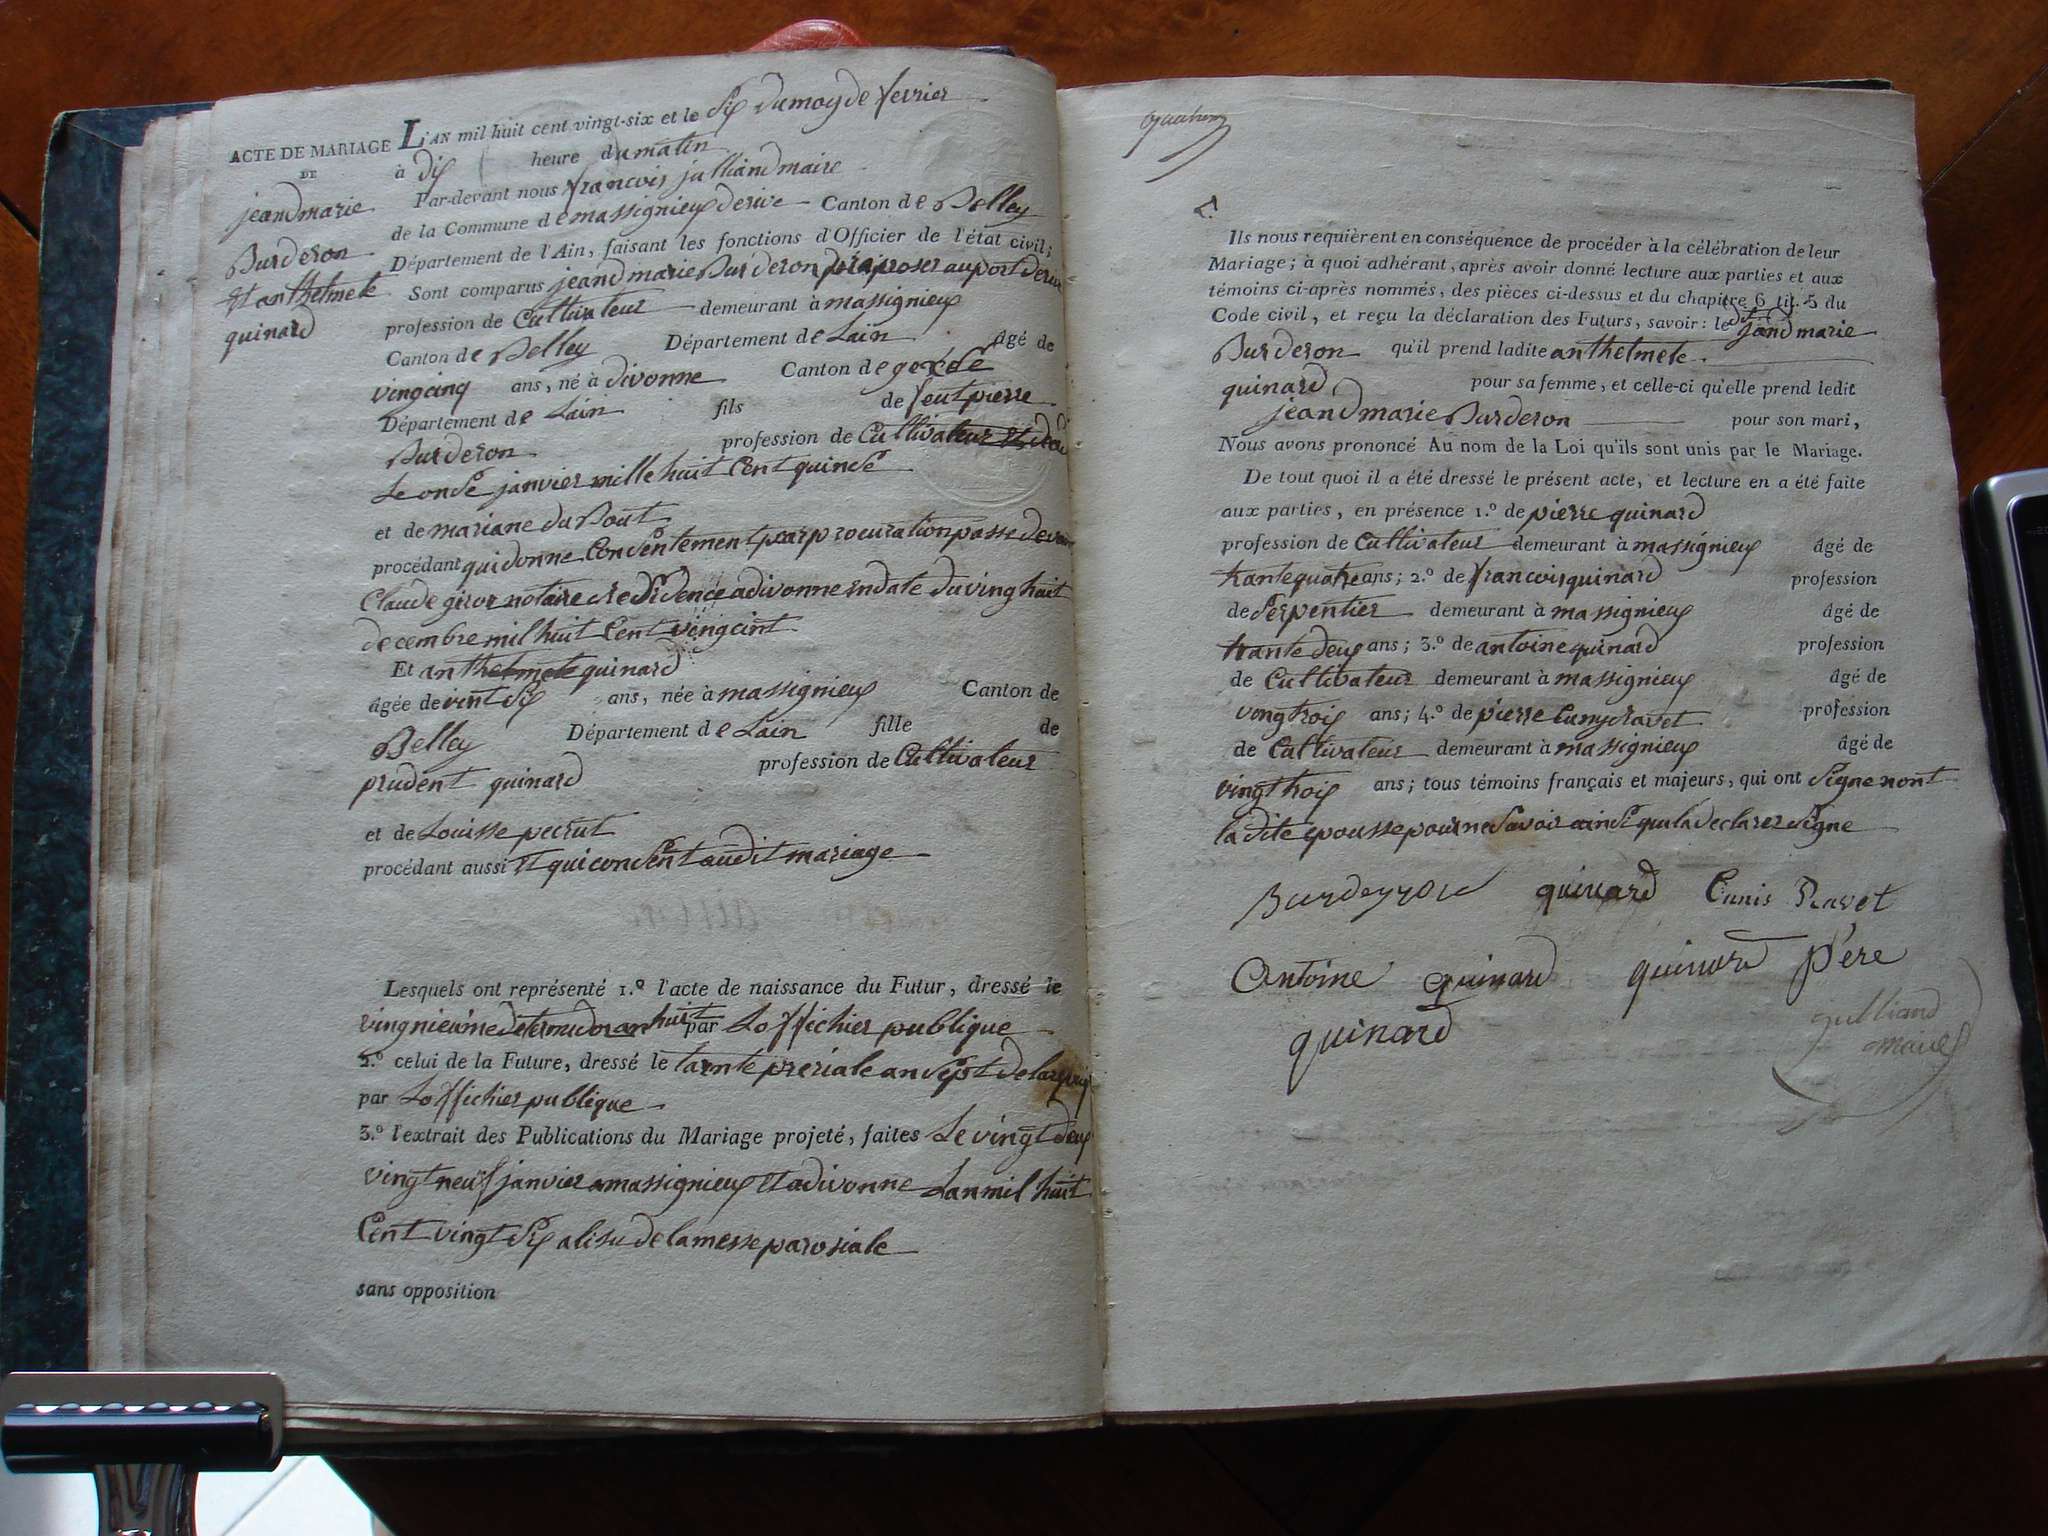 ACTE DE MARIAGE
DE
jeandmarie
Burderon
et anthelmete
quinard
L'AN mil huit cent vingt-six et le Six dumoy de fevrier
à dix heure dumatin
Par-devant nous francois julliand maire
de la Commune de massignieux derive Canton de Belley
Département de l'Ain, faisant les fonctions d'Officier de l'état civil;
Sont comparus jeandmarie Burderon preposer auport derive
profession de Cultivateur demeurant à massignieux
Canton de Belley Département de Lain Âgé de
vingcinq ans, né à divonne Canton de gex
Département de Lain fils de feut pierre
Burderon profession de Cultivateur
Le onse janvier mille huit Cent quinse
et de mariane duBout
procédant quidonne Consentement par procuration passe devan
Claude giror notaire de residence adivonne endate du ving huit
decembre mil huit Cent vingcint
Et anthelmete quinard
âgée de vint Six ans, née à massignieux Canton de
Belley Département de Lain fille de
prudent quinard profession de Cultivateur
et de Louisse pecrut
procédant aussi et qui consent audit mariage
Lesquels ont représenté 1.º l'acte de naissance du Futur, dressé le
vingnieime determidor an huit par Loffichier publique
2.º celui de la Future, dressé le tarnte preriale an Sept
par Loffichier publique
3.º l'extrait des Publications du Mariage projeté, faites Le vingt deux
vingt neuf janvier amassignieux et adivonne Lanmil huit
Cent vingt Six alisu de lamesse parosiale
sans opposition
Ils nous requièrent en conséquence de procéder à la célébration de leur
Mariage; à quoi adhérant, après avoir donné lecture aux parties et aux
témoins ci-après nommés, des pièces ci-dessus et du chapitre 6 tit. 5 du
Code civil, et reçu la déclaration des Futurs, savoir: ledit jeandmarie
Burderon qu'il prend ladite anthelmete
quinard pour sa femme, et celle-ci qu'elle prend ledit
jeandmarie Burderon pour son mari,
Nous avons prononcé Au nom de la Loi qu'ils sont unis par le Mariage.
De tout quoi il a été dressé le présent acte, et lecture en a été faite
aux parties, en présence 1.º de pierre quinard
profession de Cultivateur demeurant à massignieux âgé de
trantequatre ans; 2.º de francois quinard profession
de Serpentier demeurant à massignieux âgé de
trante deux ans; 3.º de antoine quinard profession
de Cultivateur demeurant à massignieux âgé de
vingtrois ans; 4.º de pierre Cunyravet profession
de Cultivateur demeurant à massignieux âgé de
vingtrois ans; tous témoins français et majeurs, qui ont Signe nont
la dite epousse pour ne Savoir ainsi quela declarer Signe
Burdeyron quinard Cunis Ravet
Antoine quinard quinard père
quinard
julliand
maire